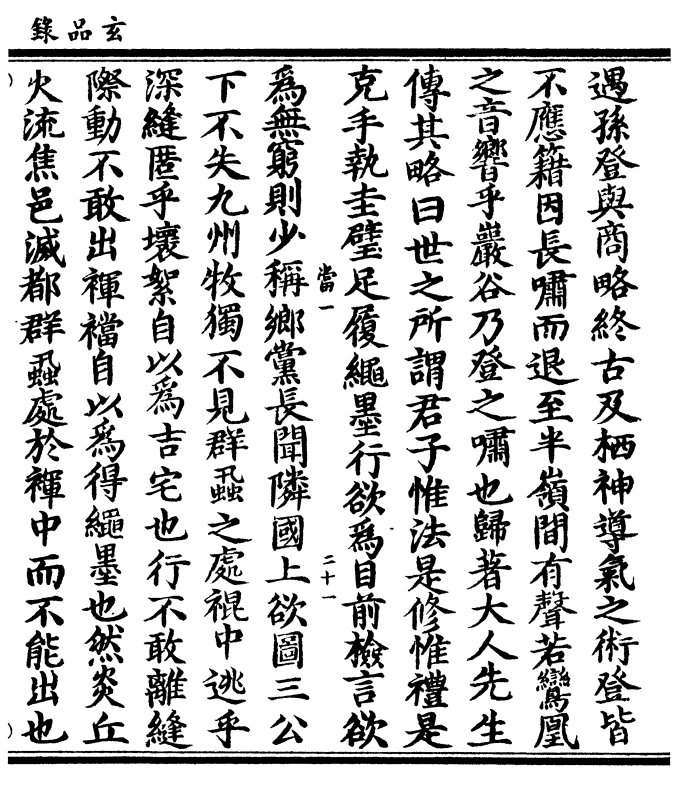 玄品錄
遇孫登與商略終古及栖神導氣之術登皆
不應籍因長嘯而退至半嶺間有聲若鸞凰
之音響乎巖谷乃登之嘯也歸著大人先生
傳其略曰世之所謂君子惟法是修惟禮是
克手執圭璧足履繩墨行欲爲目前檢言欲
爲無窮則少稱鄉黨長聞隣國上欲圖三公
當一
二十一
下不失九州牧獨不見群蝨之處裩中逃乎
深縫匿乎壞絮自以爲吉宅也行不敢離縫
際動不敢出褌襠自以爲得繩墨也然炎丘
火流焦邑滅都群蝨處於褌中而不能出也